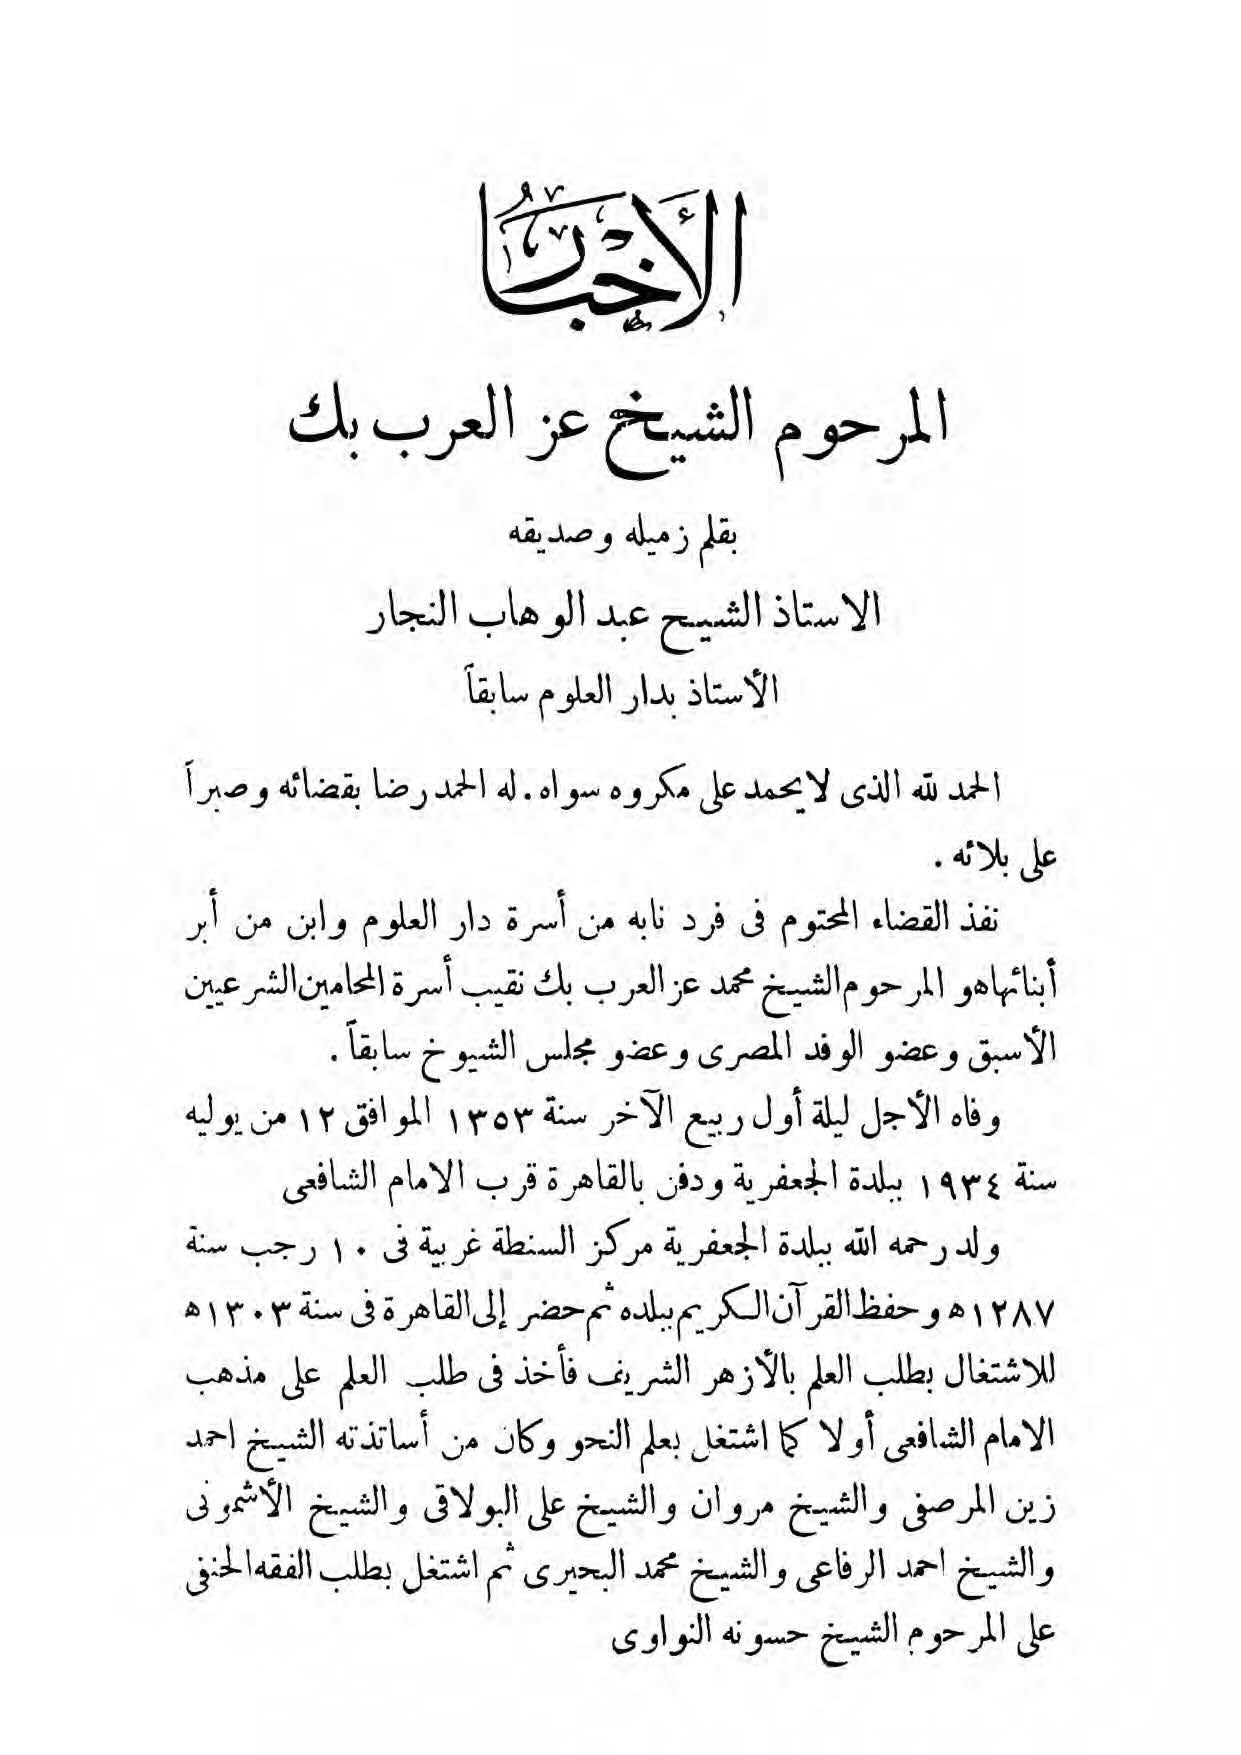 الأخبار
المرحوم الشيخ عز العرب بك
بقلم زميله وصديقه
الاستاذ الشيخ عبد الوهاب النجار
الأستاذ بدار العلوم سابقاً
الحمد لله الذى لا يحمد على مكروه سواه . له الحمد رضا بقضائه وصبراً
على بلائه .
نفذ القضاء المحتوم فى فرد نابه من أسرة دار العلوم وابن من أبر
أبنائها هو المرحوم الشيخ محمد عز العرب بك نقيب أسرة المحامين الشرعيين
الأسبق وعضو الوفد المصرى وعضو مجلس الشيوخ سابقاً .
وفاه الأجل ليلة أول ربيع الآخر سنة ١٣٥٣ الموافق ١٢ من يوليه
سنة ١٩٣٤ ببلدة الجعفرية ودفن بالقاهرة قرب الامام الشافعى
ولد رحمه الله ببلدة الجعفرية مركز السنطة غربية فى ١٠ رجب سنة
١٢٨٧ ه وحفظ القرآن الكريم ببلده ثم حضر إلى القاهرة فى سنة ١٣٠٣ ه
للاشتغال بطلب العلم بالأزهر الشريف فأخذ فى طلب العلم على مذهب
الامام الشافعى أولا كما اشتغل بعلم النحو وكان من أساتذته الشيخ احمد
زين المرصفى والشيخ مروان والشيخ على البولاقى والشيخ الأشمونى
والشيخ احمد الرفاعى والشيخ محمد البحيرى ثم اشتغل بطلب الفقه الحنفى
على المرحوم الشيخ حسونه النواوى